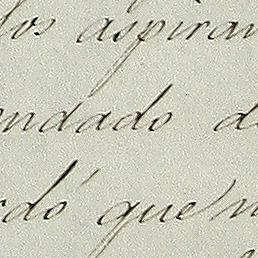 los aspiran
ndado d
rdó que n